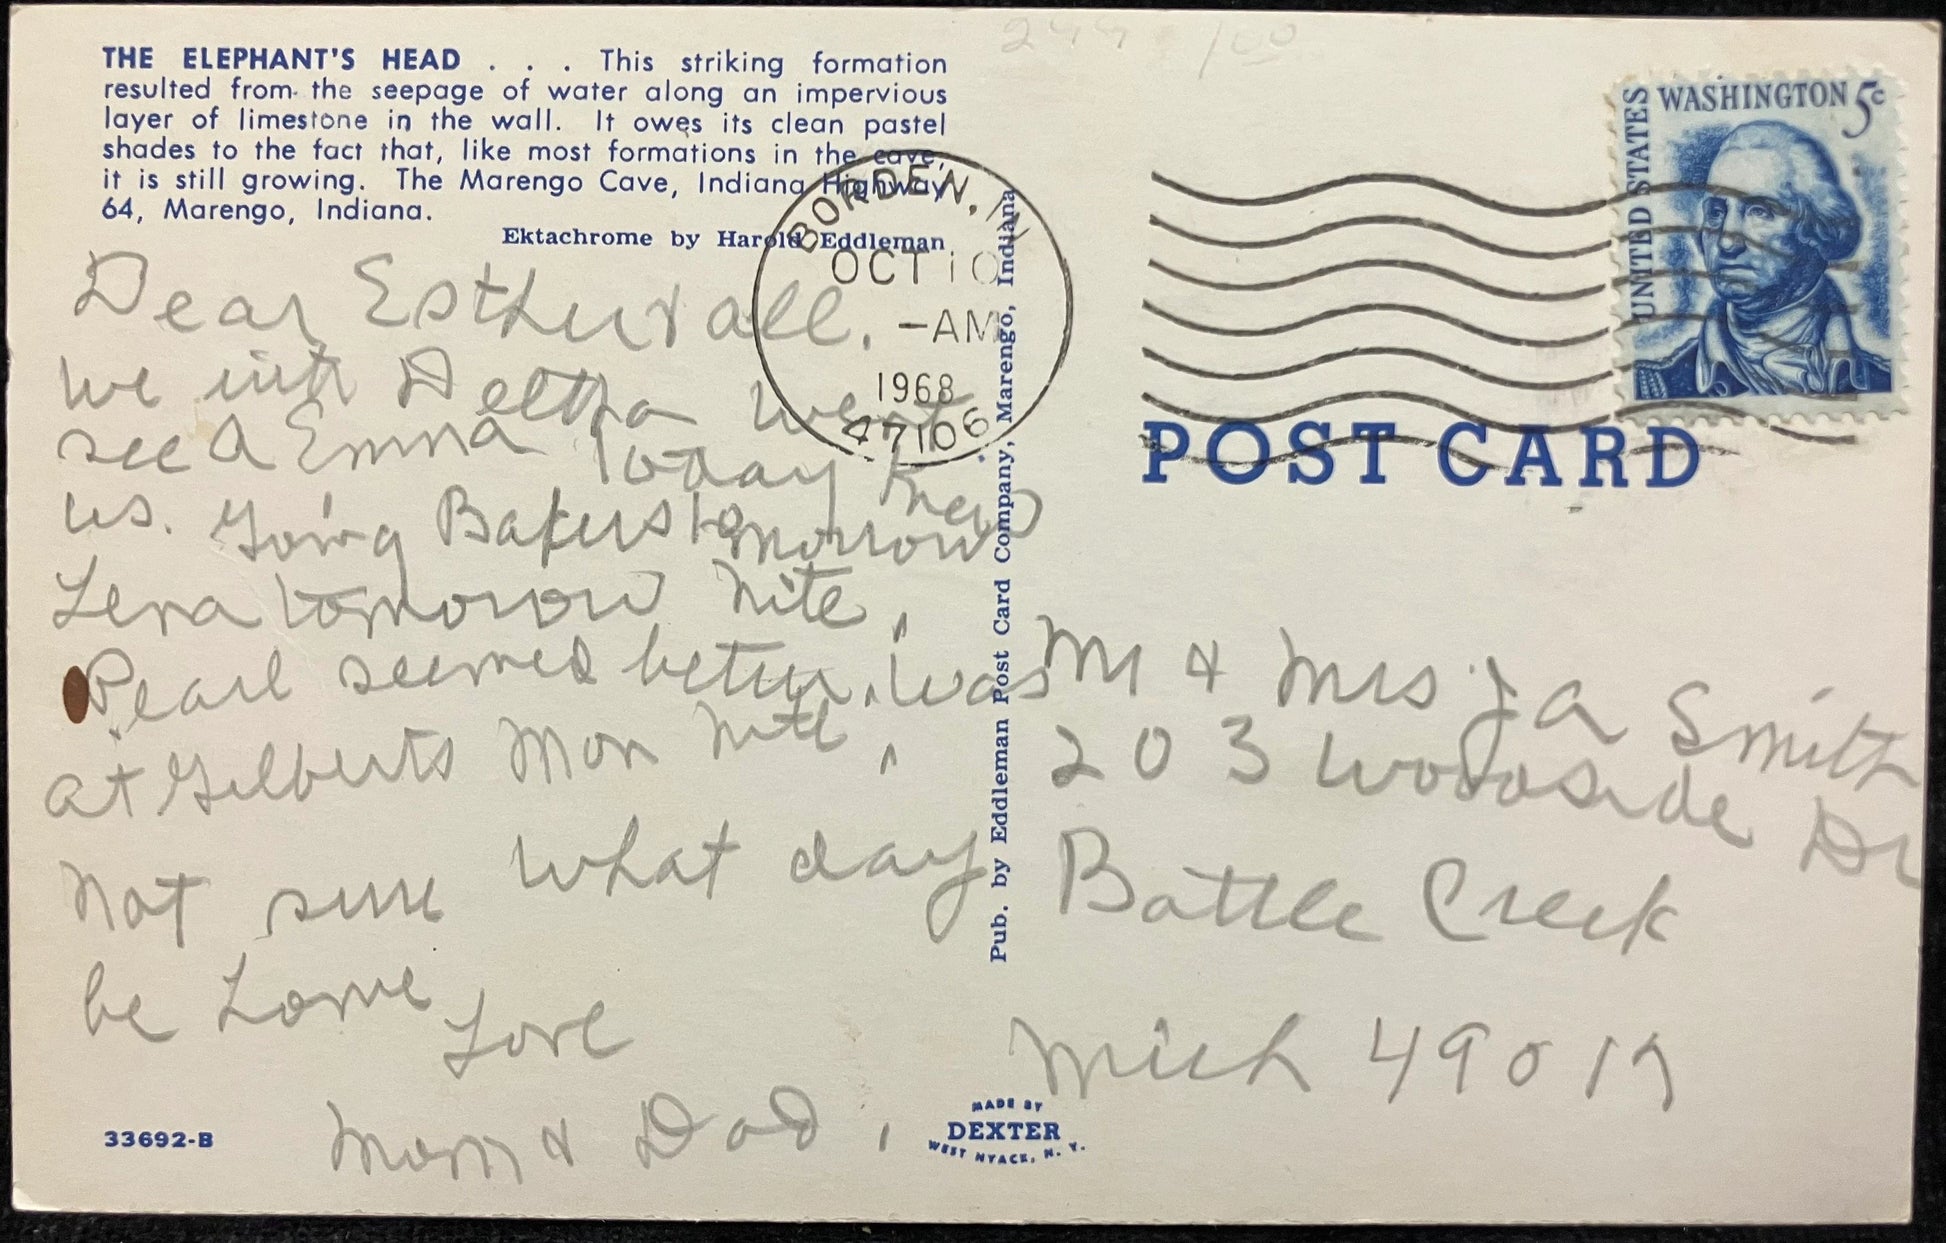 THE ELEPHANT'S HEAD . . . This striking formation
resulted from the seepage of water along an impervious
layer of limestone in the wall. It owes its clean pastel
shades to the fact that, like most formations in the cave,
it is still growing. The Marengo Cave, Indiana Highway
64, Marengo, Indiana.
Ektachrome by Harold Eddleman
Dear Esther & all,
we with Deltha went
see A Emma Today knew
us. Going Bakers tomorrow
Lena tomorrow Nite,
Pearl seemed better, was
at Gilberts Mon Nite,
Not sure what day
be Home Love
Mom & Dad,
33692-B
BORDEN, IN
OCT 10
-AM
1968
47106
Pub. by Eddleman Post Card Company, Marengo, Indiana
MADE BY
DEXTER
WEST NYACK, N. Y.
UNITED STATES
WASHINGTON 5c
POST CARD
Mr & Mrs J A Smith
203 Woodside Dr
Battle Creek
Mich 49017